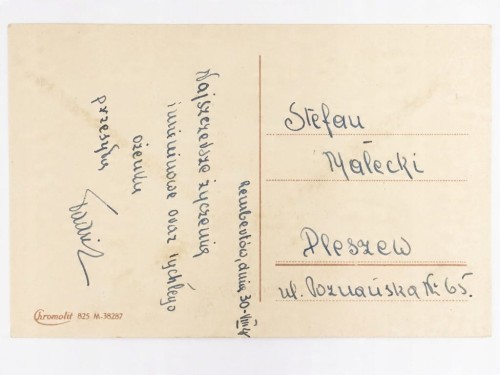 Rembertów, dnia 30-VIII
Najszczersze życzenia
imieninowe oraz rychłego
ożenku
przesyła
Stefan
Małecki
Pleszew
ul. Poznańska Nr 65.
Chromolit 825 M-38287